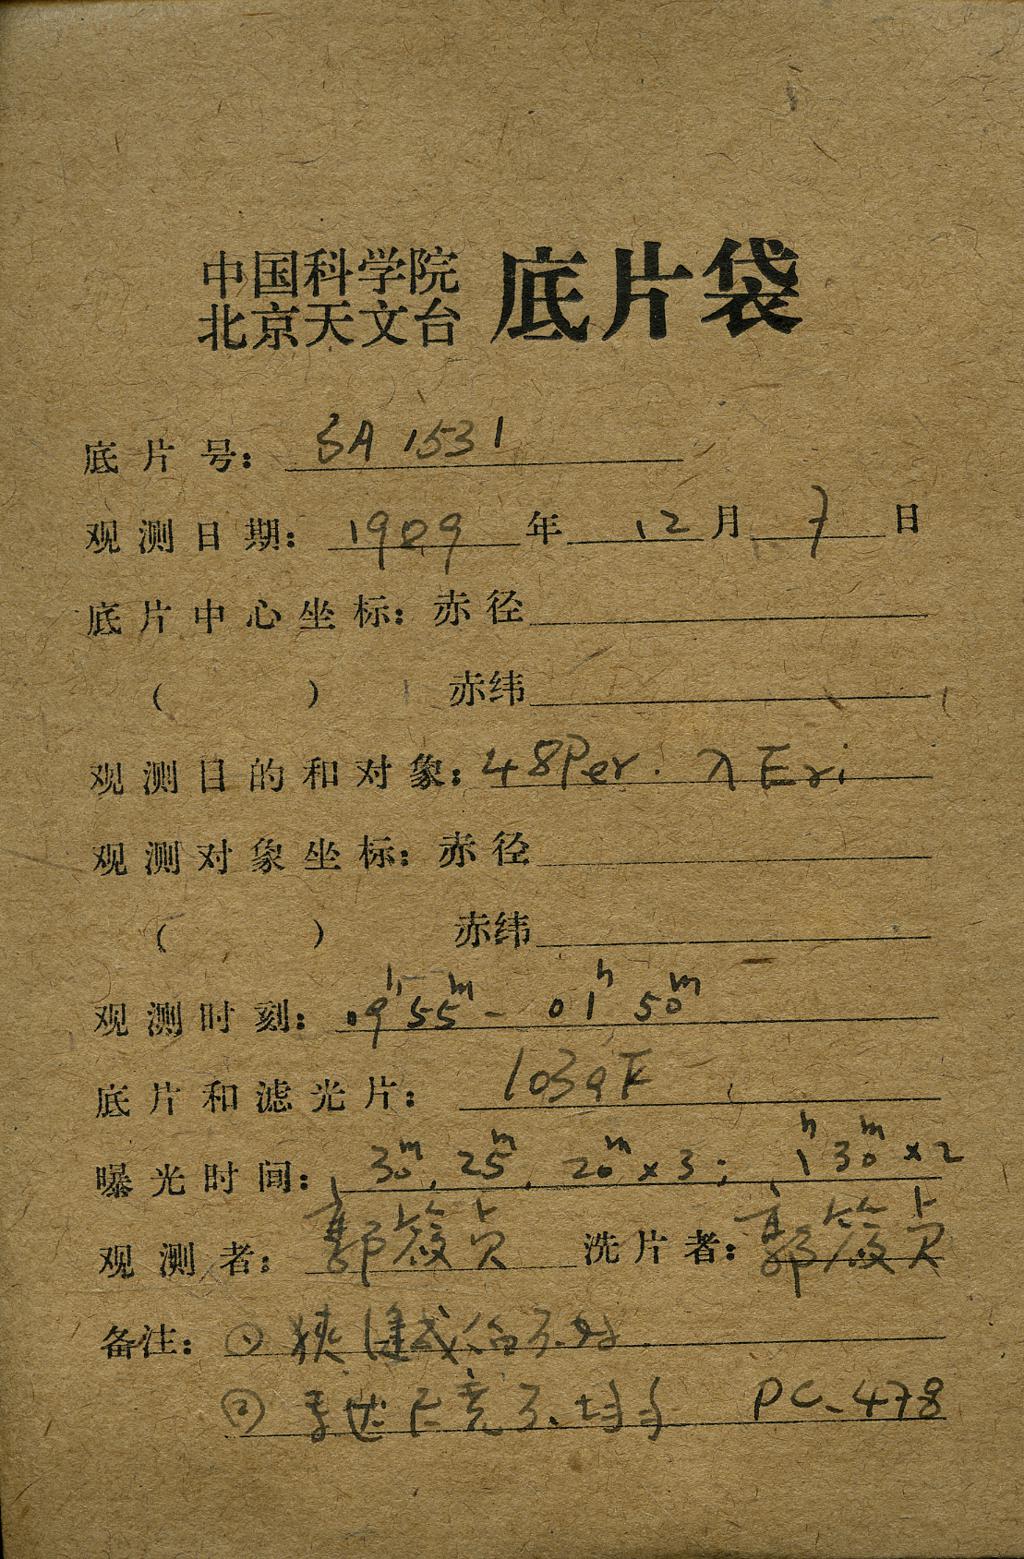 中国科学院
北京天文台 底片袋
底片号: SA 1531
观测日期: 1989 年 12 月 7 日
底片中心坐标: 赤径
( ) 赤纬
观测目的和对象: 48Per. λ Eri
观测对象坐标: 赤径
( ) 赤纬
观测时刻: 09h 55m - 01h 50m
底片和滤光片: 103aF
曝光时间: 30m, 25m, 20m×3; 1h 30m×2
观测者: 郭 洗片者: 郭
备注: ①
② PC-478